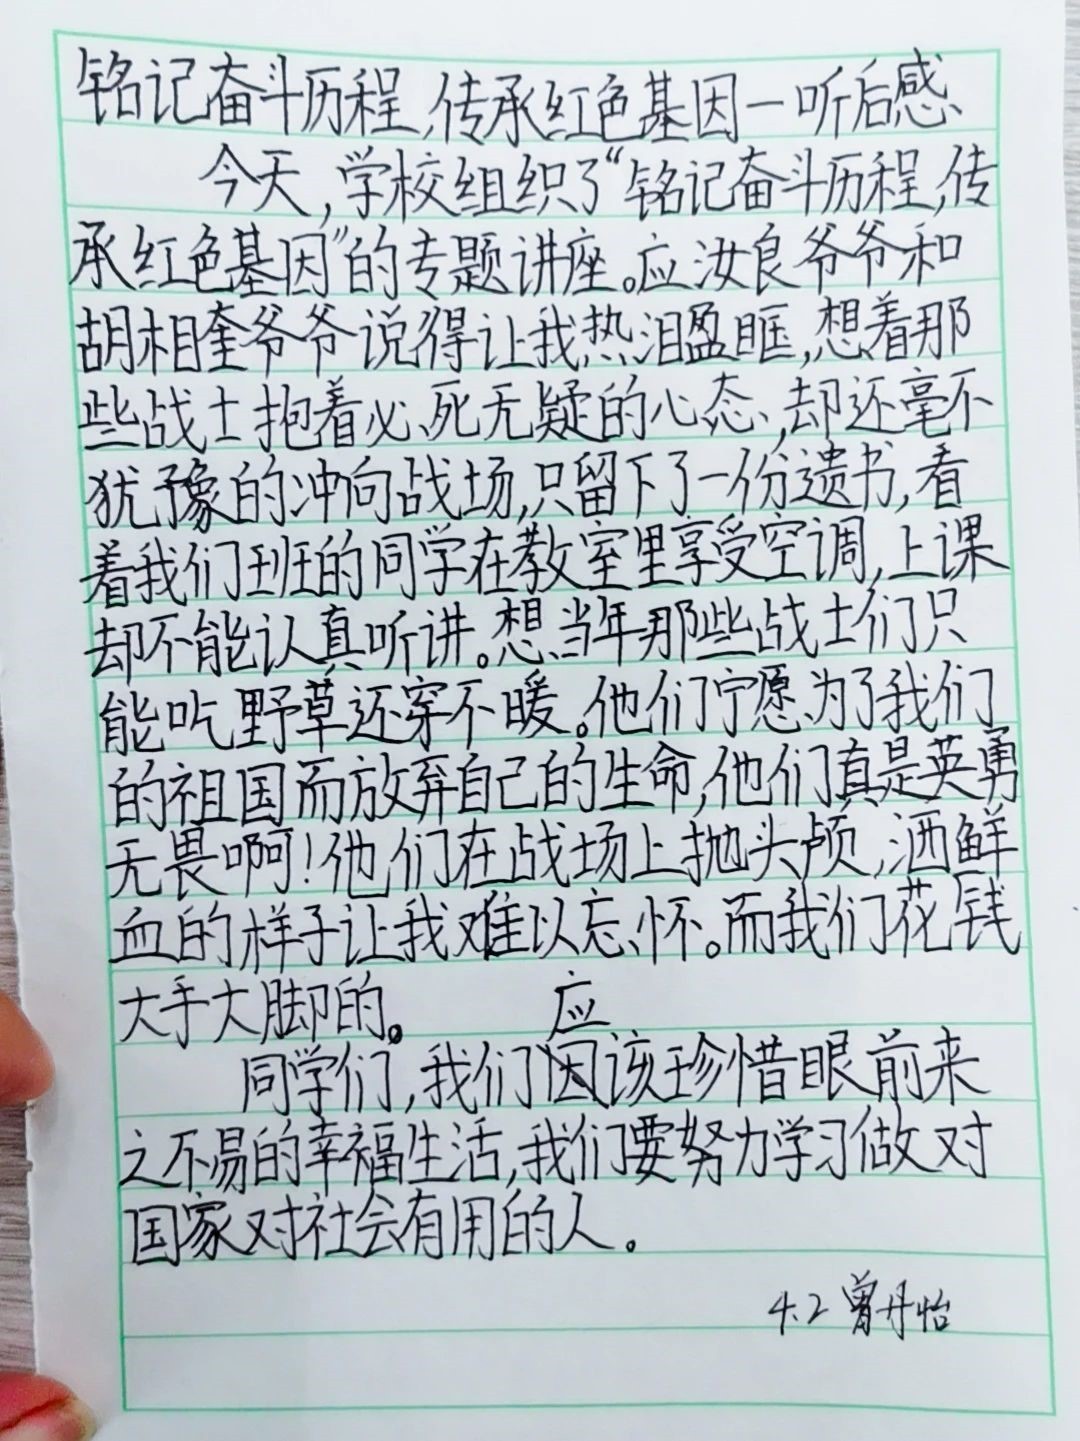 铭记奋斗历程,传承红色基因一听后感
今天,学校组织了“铭记奋斗历程,传
承红色基因”的专题讲座。应汝良爷爷和
胡相奎爷爷说得让我热泪盈眶,想着那
些战士抱着必死无疑的心态,却还毫不
犹豫的冲向战场,只留下了一份遗书,看
着我们班的同学在教室里享受空调,上课
却不能认真听讲。想当年那些战士们只
能吃野草还穿不暖。他们宁愿为了我们
的祖国而放弃自己的生命,他们真是英勇
无畏啊!他们在战场上抛头颅,洒鲜
血的样子让我难以忘怀。而我们花钱
大手大脚的。
同学们,我们应该珍惜眼前来
之不易的幸福生活,我们要努力学习做对
国家对社会有用的人。
4.2 曾丹怡